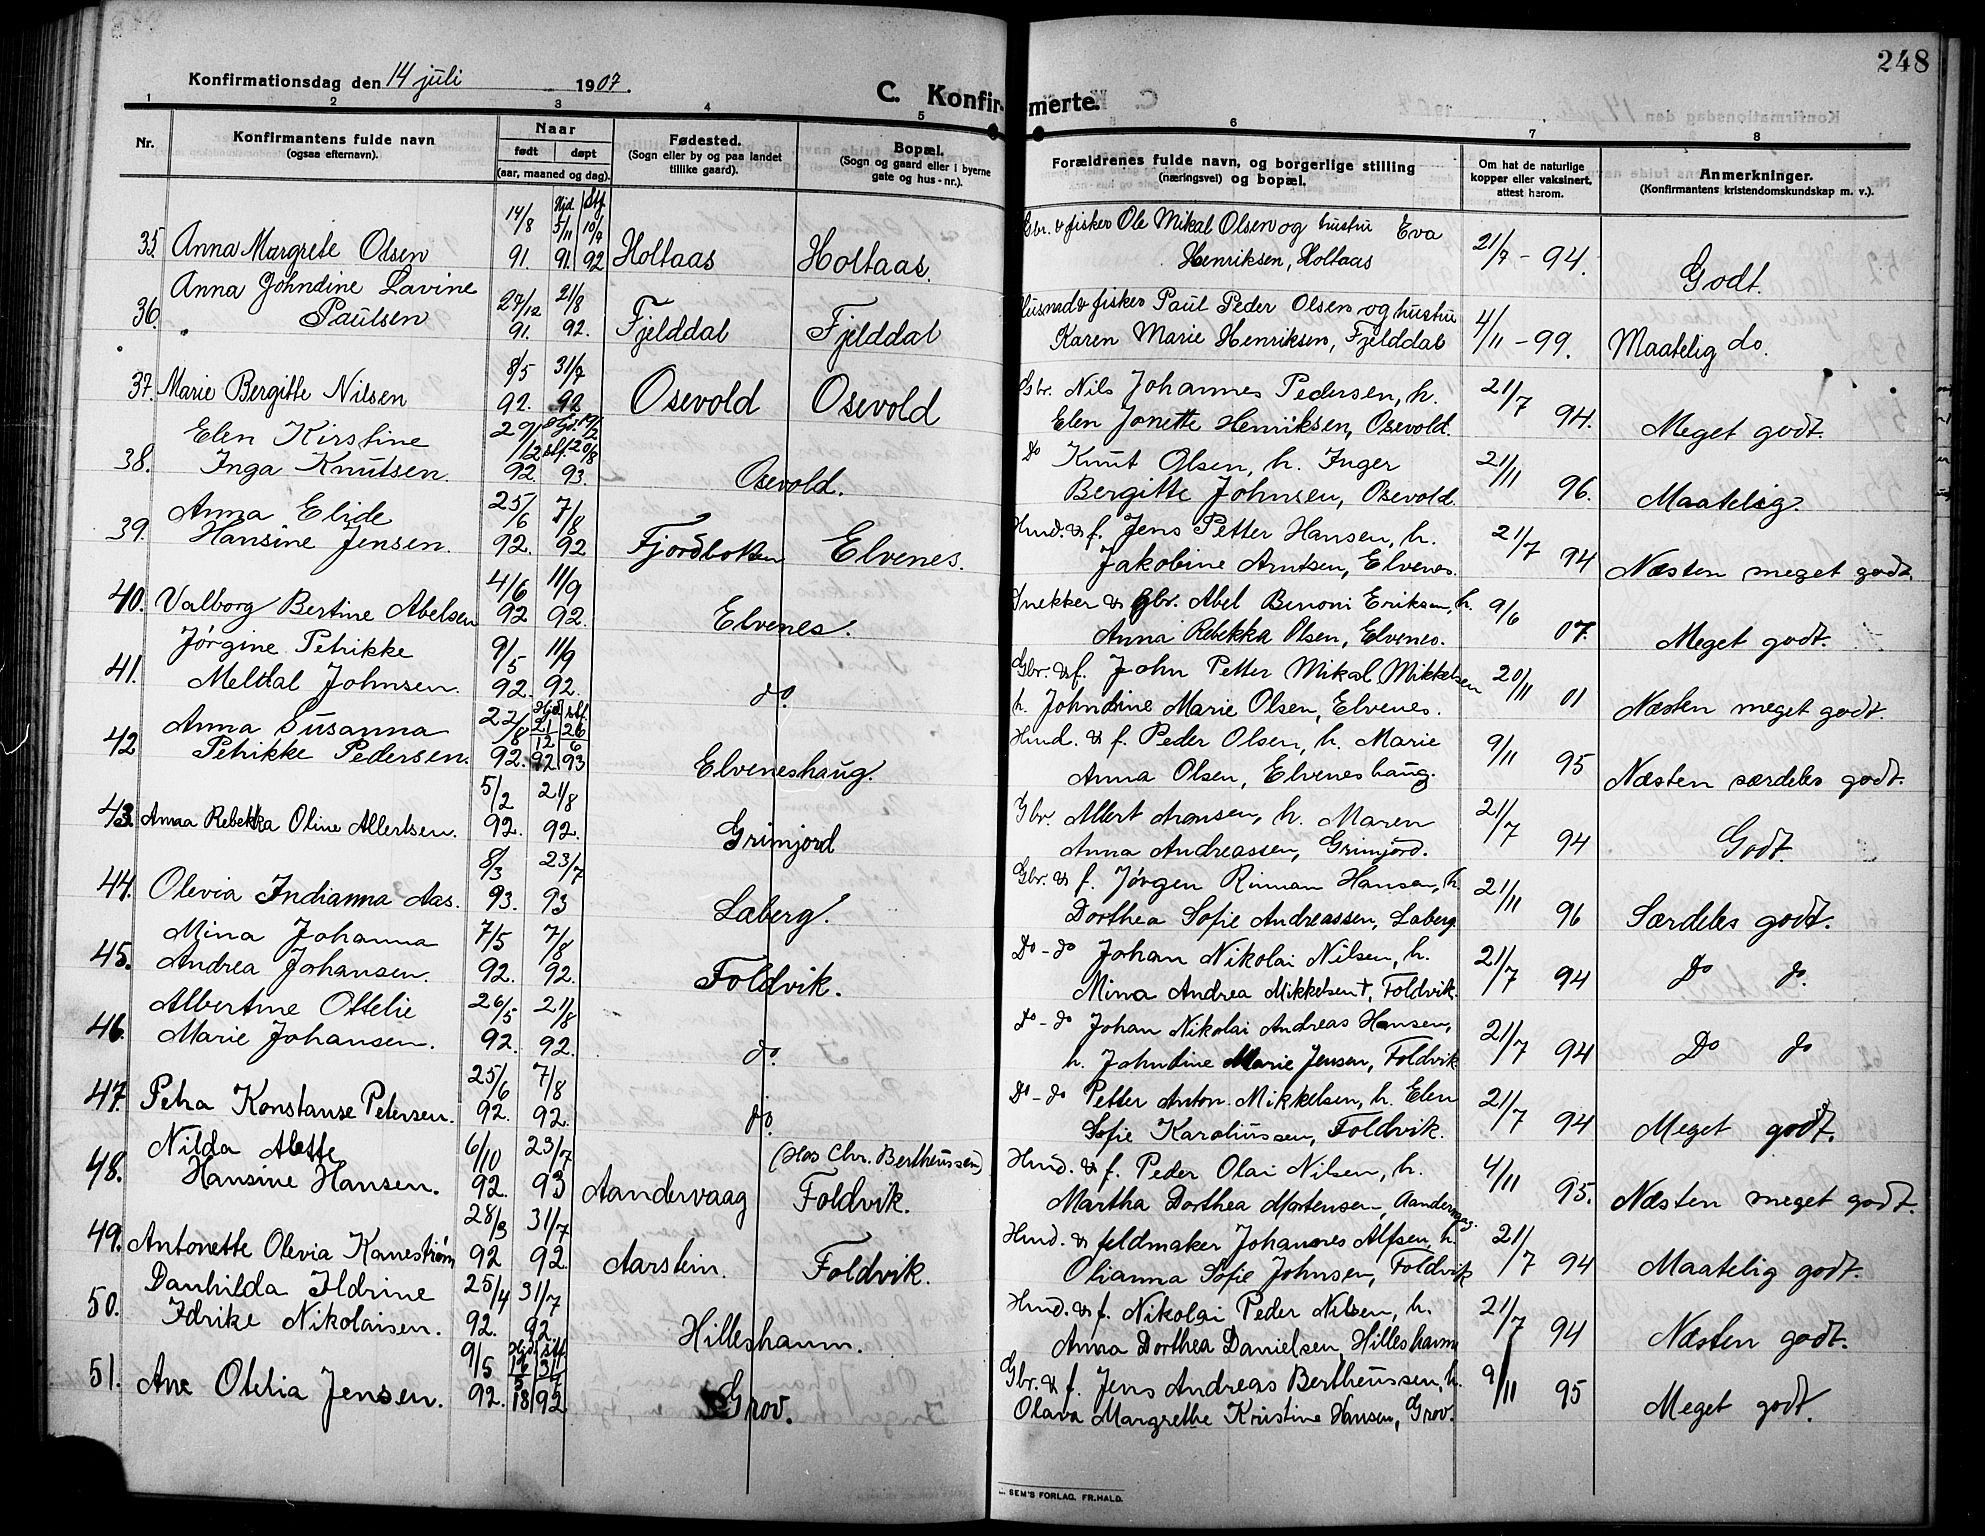 248
Konfirmationsdag den 14 juli 1907.
C. Konfirmerte.
1 2 3 4 5 6 7 8
Nr.
Konfirmantens fulde navn
(ogsaa efternavn).
Naar
født døpt
(aar, maaned og dag).
Fødested.
(Sogn eller by og paa landet
tillike gaard).
Bopæl.
(Sogn og gaard eller i byerne
gate og hus-nr.).
Forældrenes fulde navn, og borgerlige stilling
(næringsvei) og bopæl.
Om hat de naturlige
kopper eller vaksinert,
attest herom.
Anmerkninger.
(Konfirmantens kristendomskundskap m. v.).
14/8 Hjd. 5/11 stf. 10/4 Gbr. & fisker Ole Mikal Olsen og hustru Eva
35. Anna Margrete Olsen 91. 91. 92 Holtaas Holtaas. Henriksen, Holtaas 21/7 - 94. Godt.
Anna Johndine Lavine 27/12 21/8 Husmd & fisker Paul Peder Olsen og hustru
36. Paulsen 91. 92. Fjelddal Fjelddal Karen Marie Henriksen, Fjelddal 4/11 - 99. Maatelig do.
8/5 31/7 Gbr. Nils Johannes Pedersen, h. 21/7
37. Marie Bergitte Nilsen 92. 92 Osevold Osevold Elen Jonette Henriksen, Osevold. 94. Meget godt.
Elen Kirstine Do Knut Olsen, h. Inger 21/11
38. Inga Knutsen. 92. 93. Osevold. Bergitte Johnsen, Osevold. 96. Maatelig.
Anna Elide 25/6 7/8 Hmd. & f. Jens Petter Hansen, h. 21/7
39. Hansine Jensen. 92. 92 Fjordbotten Elvenes. Jakobine Arntsen, Elvenes. 94 Næsten meget godt.
4/6 11/9 Snekker & Gbr. Abel Benoni Eriksen, h. 9/6
40. Valborg Bertine Abelsen 92 92. Elvenes. Anna Rebekka Olsen, Elvenes. 07. Meget godt.
Jørgine Petrikke 9/5 11/9 Gbr. & f. John Petter Mikal Mikkelsen 20/11
41. Meldal Johnsen. 92. 92. do. h. Johndine Marie Olsen, Elvenes. 01 Næsten meget godt.
Anna Susanna 22/8 Hjd. 21/12 stf. 26/6 Hmd. & f. Peder Olsen, h. Marie 9/11
42 Petrikke Pedersen. 92. 92 93 Elveneshaug. Anna Olsen, Elveneshaug. 95 Næsten særdeles godt.
5/2 21/8 Gbr. Allert Aronsen, h. Maren 21/7
43. Anna Rebekka Oline Allertsen. 92. 92. Grimjord Anna Andreassen, Grimjord. 94 Godt.
8/3 23/7 Gbr. & f. Jørgen Rinman Hansen, h. 21/11
44. Olevia Indianna Aas. 93. 93 Laberg. Dorthea Sofie Andreassen, Laberg. 96 Særdeles godt.
Mina Johanna 7/5 7/8 Do - do Johan Nikolai Nilsen, h. 21/7
45. Andrea Johansen. 92. 92. Foldvik. Mina Andrea Mikkelsen †, Foldvik. 94 Do do.
Albertine Ottelie 26/5 21/8 Do - do Johan Nikolai Andreas Hansen, 21/7
46. Marie Johansen. 92. 92. do. h. Johndine Marie Jensen, Foldvik 94 Do do
25/6 7/8 Do - do Petter Anton Mikkelsen, h. Elen 21/7
47. Petra Konstanse Petersen. 92. 92. do. Sofie Karoliussen, Foldvik. 94 Meget godt.
Nilda Alette 6/10 23/7 (Hos Chr. Bertheussen) Hmd. & f. Peder Olai Nilsen, h. 4/11
48. Hansine Hansen. 92. 93 Aandervaag Foldvik. Martha Dorthea Mortensen, Aandervaag. 95. Næsten meget godt.
28/3 31/7 Hmd. & feldmaker Johannes Alfsen, h. 21/7
49. Antonette Olevia Kanestrøm 92 92. Aarstein. Foldvik. Olianna Sofie Johnsen, Foldvik 94 Maatelig godt.
Danhilda Ildrine 25/4 31/7 Hmd. & f. Nikolai Peder Nilsen, h. 21/7
50. Idrike Nikolaisen. 92. 92. Hilleshamn. Anna Dorthea Danielsen, Hilleshamn 94 Næsten godt.
9/5 Hjd. stf. Gbr. & f. Jens Andreas Bertheussen, h. 9/11
51. Ane Otelia Jensen. 92. Grov. Olava Margrethe Kristine Hansen, Grov. 95 Meget godt.
SEM'S FORLAG. FR.HALD.